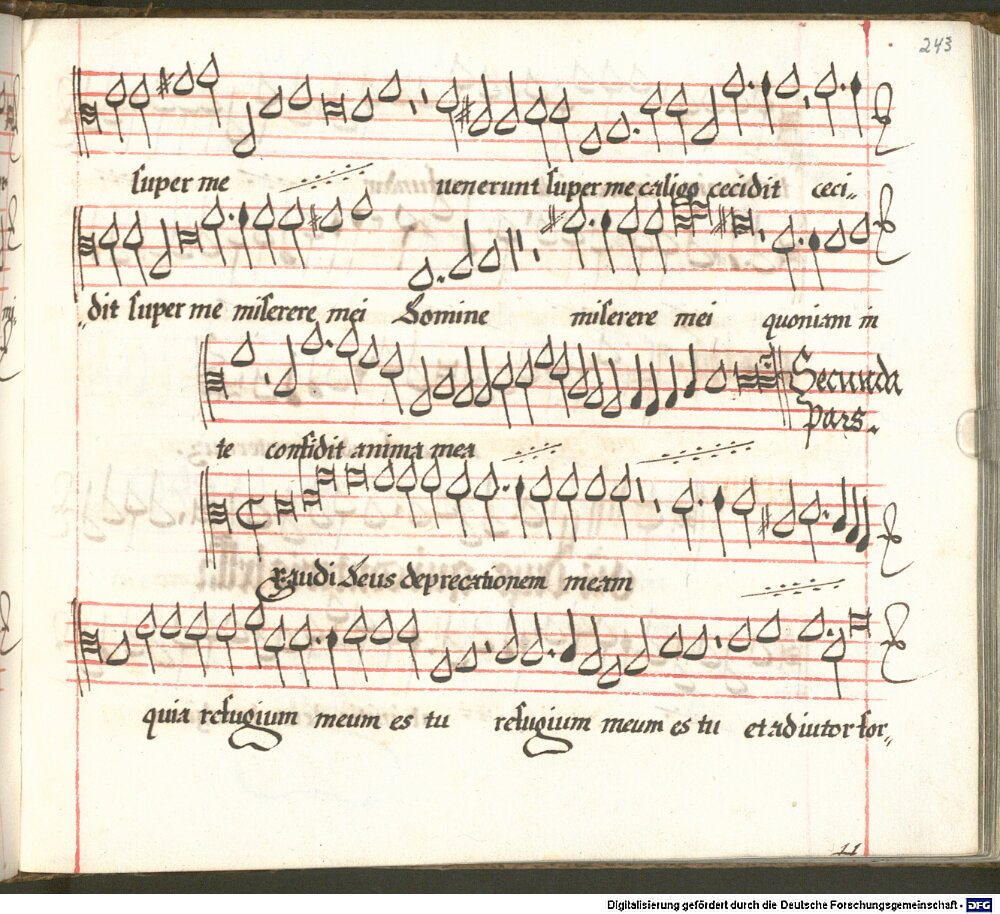 243
super me uenerunt super me caligo cecidit ceci„
„dit super me miserere mei Domine miserere mei quoniam in
Secunda
pars.
te confidit anima mea
Exaudi Deus deprecationem meam
quia refugium meum es tu refugium meum es tu et adiutor for„
11
Digitalisierung gefördert durch die Deutsche Forschungsgemeinschaft - DFG